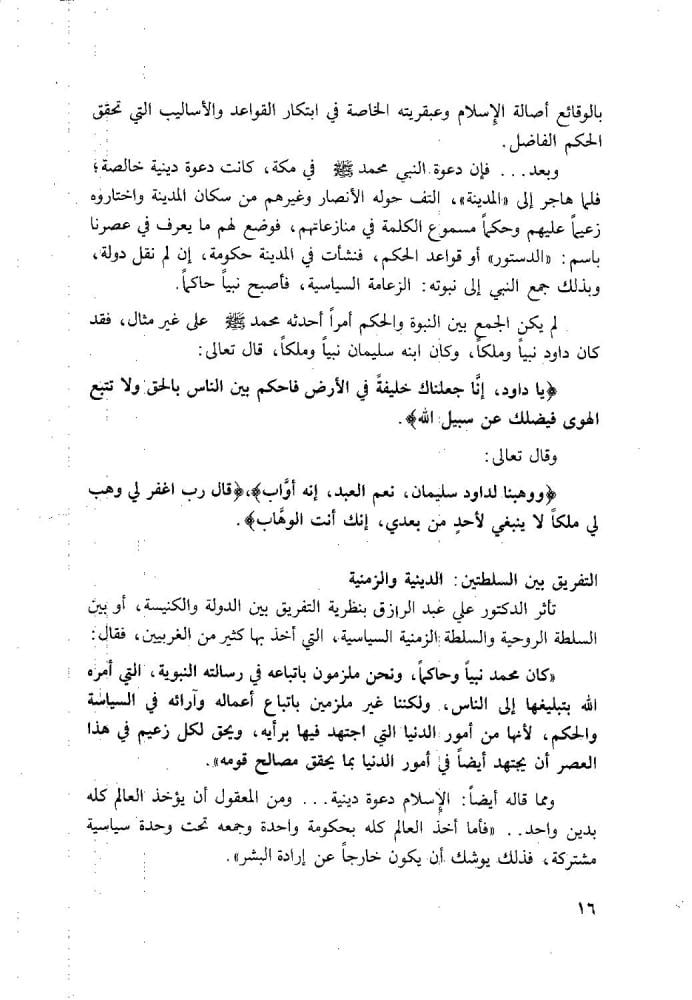 بالوقائع أصالة الإسلام وعبقريته الخاصة في ابتكار القواعد والأساليب التي تحقق
الحكم الفاضل.
وبعد... فإن دعوة النبي محمد ﷺ في مكة، كانت دعوة دينية خالصة؛
فلما هاجر إلى «المدينة»، التف حوله الأنصار وغيرهم من سكان المدينة واختاروه
زعيماً عليهم وحكماً مسموع الكلمة في منازعاتهم، فوضع لهم ما يعرف في عصرنا
باسم: «الدستور» أو قواعد الحكم، فنشأت في المدينة حكومة، إن لم نقل دولة،
وبذلك جمع النبي إلى نبوته: الزعامة السياسية، فأصبح نبياً حاكماً.
لم يكن الجمع بين النبوة والحكم أمراً أحدثه محمد ﷺ على غير مثال، فقد
كان داود نبياً وملكاً، وكان ابنه سليمان نبياً وملكاً، قال تعالى:
﴿يا داود، إنَّا جعلناك خليفةً في الأرض فاحكم بين الناس بالحق ولا تتبع
الهوى فيضلك عن سبيل الله﴾.
وقال تعالى:
﴿ووهبنا لداود سليمان، نعم العبد، إنه أوَّاب﴾،﴿قال رب اغفر لي وهب
لي ملكاً لا ينبغي لأحدٍ من بعدي، إنك أنت الوهَّاب﴾.
التفريق بين السلطتين: الدينية والزمنية
تأثر الدكتور علي عبد الرازق بنظرية التفريق بين الدولة والكنيسة، أو بين
السلطة الروحية والسلطة الزمنية السياسية، التي أخذ بها كثير من الغربيين، فقال:
«كان محمد نبياً وحاكماً، ونحن ملزمون باتباعه في رسالته النبوية، التي أمره
الله بتبليغها إلى الناس، ولكننا غير ملزمين باتباع أعماله وآرائه في السياسة
والحكم، لأنها من أمور الدنيا التي اجتهد فيها برأيه، ويحق لكل زعيم في هذا
العصر أن يجتهد أيضاً في أمور الدنيا بما يحقق مصالح قومه».
ومما قاله أيضاً: الإسلام دعوة دينية... ومن المعقول أن يؤخذ العالم كله
بدين واحد.. «فأما أخذ العالم كله بحكومة واحدة وجمعه تحت وحدة سياسية
مشتركة، فذلك يوشك أن يكون خارجاً عن إرادة البشر».
١٦